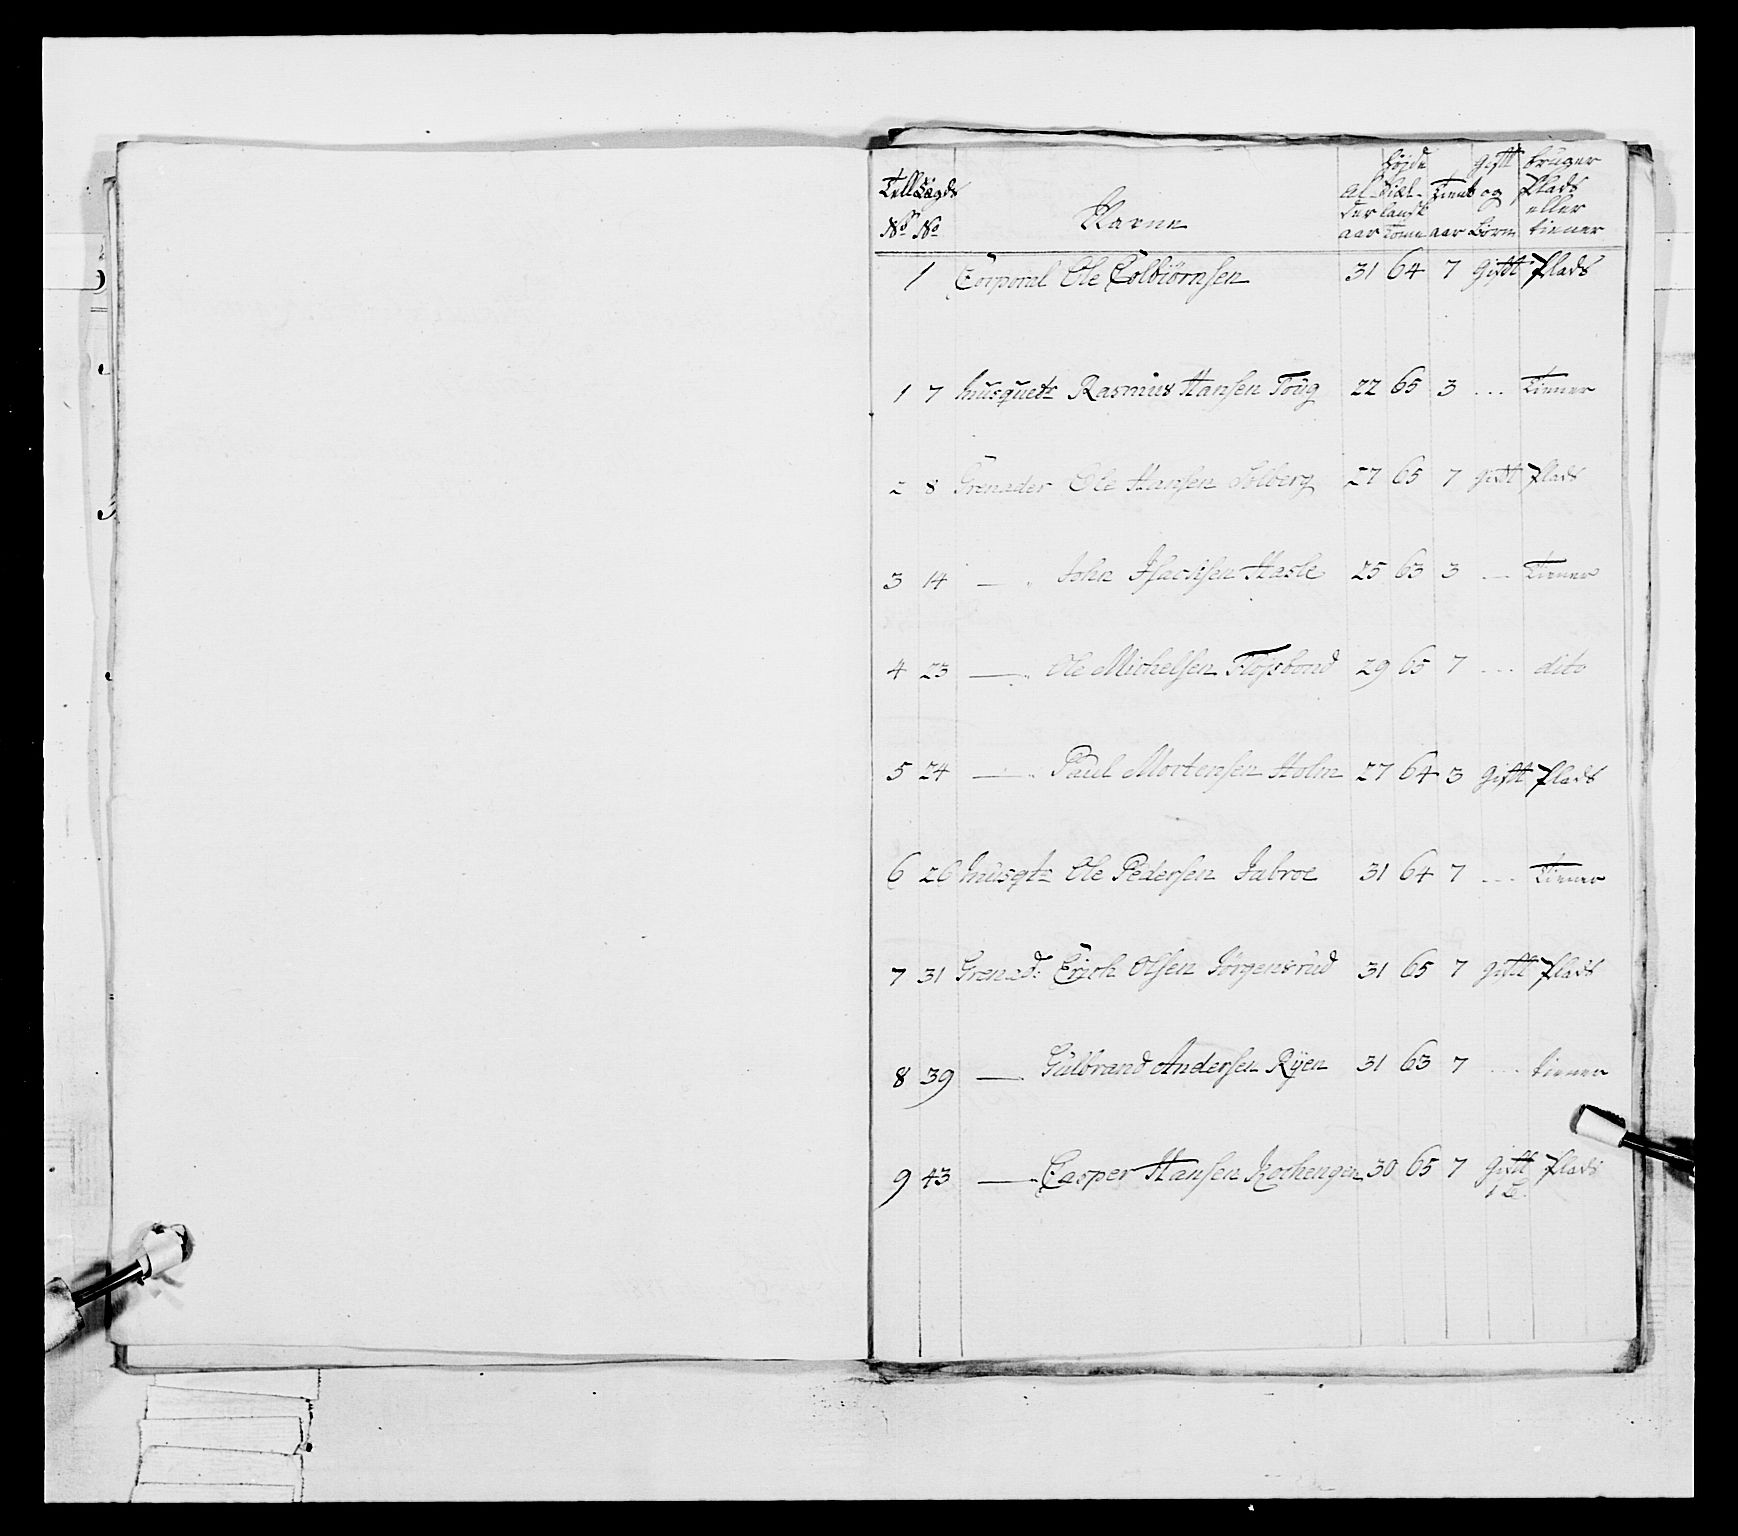 Tell Lægds Nº Nº Navne Alder aar højde Siæl-landsk Tomr Tient aar gift og børn bruger Plads eller tiener
1 Corporal Ole Colbiörnsen 31 64 7 Gift Plads
1 7 Musquetr Rasmus Hansen Toug 22 65 3 ... Tiener
2 8 Grenader Ole Hansen Solberg 27 65 7 gift Plads
3 14 — John Isachsen Hasle 25 63 3 — Tiener
4 23 — Ole Michelsen 29 65 7 ... dito
5 24 — Paul Mortensen Holm 27 64 3 Gift Plads
6 26 Musqtr Ole Pedersen 31 64 7 ... Tiener
7 31 Grenad: Erich Olsen Jörgensrud 31 65 7 gift Plads
8 39 — Gulbrand Andersen Ryen 31 63 7 ... tiener
9 43 — Casper Hansen Kochengen 30 65 7 Gift Plads